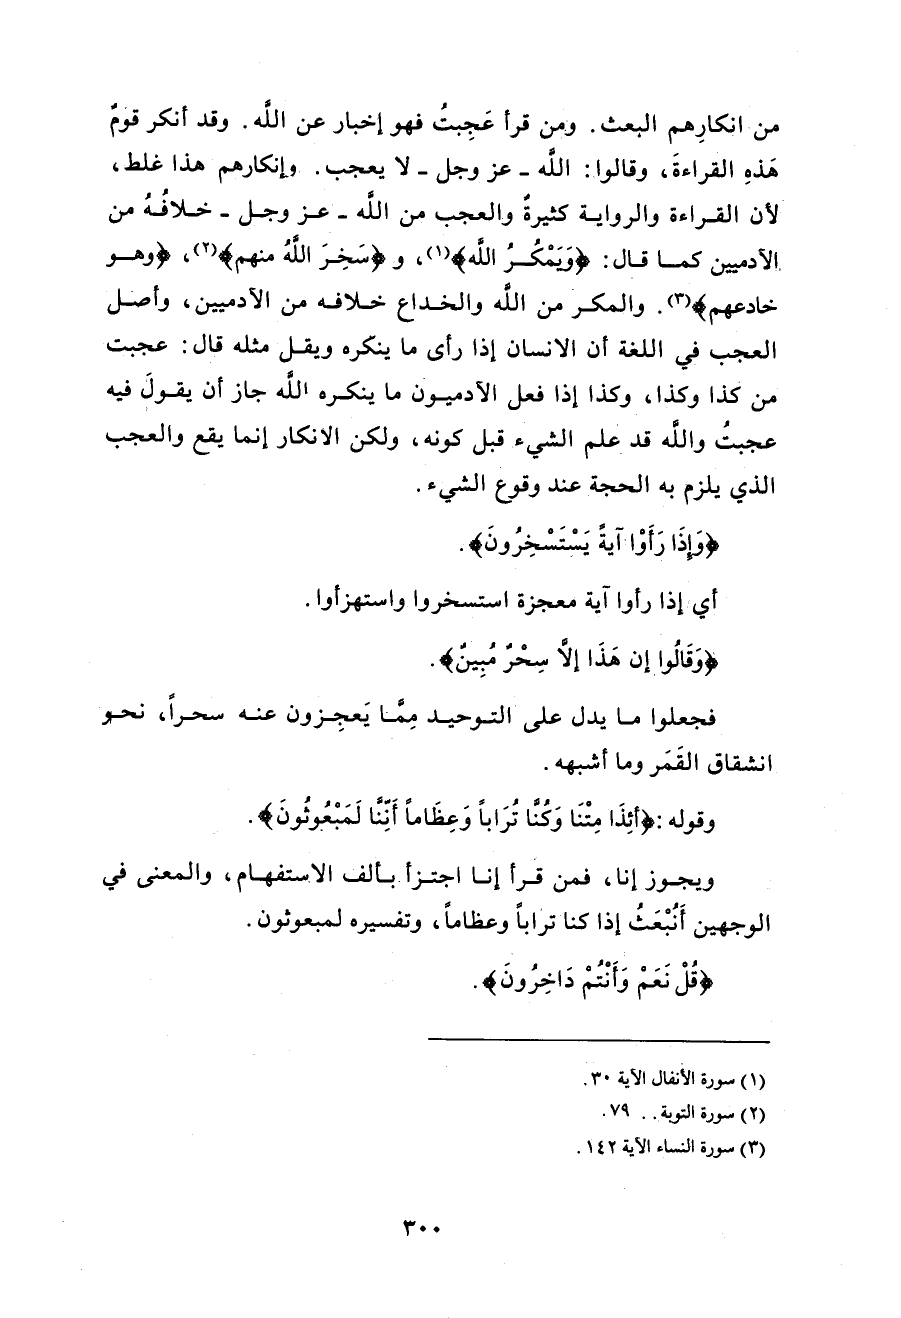 من انكارِهم البعث. ومن قرأ عَجِبتُ فهو إخبار عن اللَّه. وقد أنكر قومٌ
هَذهِ القراءةَ، وقالوا: اللَّه ـ عز وجل ـ لا يعجب. وإنكارهم هذا غلط،
لأن القراءة والرواية كثيرةٌ والعجب من اللَّه ـ عز وجل ـ خلافُهُ من
الآدميين كما قال: ﴿وَيَمْكُرُ اللَّه﴾(١)، و ﴿سَخِرَ اللَّهُ منهم﴾(٢)، ﴿وهو
خادعهم﴾(٣). والمكر من اللَّه والخداع خلافه من الآدميين، وأصل
العجب في اللغة أن الانسان إذا رأى ما ينكره ويقل مثله قال: عجبت
من كذا وكذا، وكذا إذا فعل الآدميون ما ينكره اللَّه جاز أن يقولَ فيه
عجبتُ واللَّه قد علم الشيء قبل كونه، ولكن الانكار إنما يقع والعجب
الذي يلزم به الحجة عند وقوع الشيء.
﴿وَإِذَا رَأَوْا آيةً يَسْتَسْخِرُونَ﴾.
أي إذا رأوا آية معجزة استسخروا واستهزأوا.
﴿وَقَالُوا إن هَذَا إلاَّ سِحْرٌ مُبِينٌ﴾.
فجعلوا ما يدل على التوحيد مِمَّا يَعجِزون عنه سحراً، نحو
انشقاق القَمَر وما أشبهه.
وقوله :﴿أئِذَا مِتْنَا وَكُنَّا تُرَاباً وَعِظَاماً أَئِنَّا لَمَبْعُوثُونَ﴾.
ويجوز إنا، فمن قرأ إنا اجتزأ بألف الاستفهام، والمعنى في
الوجهين أَنُبْعَثُ إذا كنا تراباً وعظاماً، وتفسيره لمبعوثون.
﴿قُلْ نَعَمْ وَأَنْتُمْ دَاخِرُونَ﴾.
(١) سورة الأنفال الآية ٣٠.
(٢) سورة التوبة. . ٧٩.
(٣) سورة النساء الآية ١٤٢.
٣٠٠